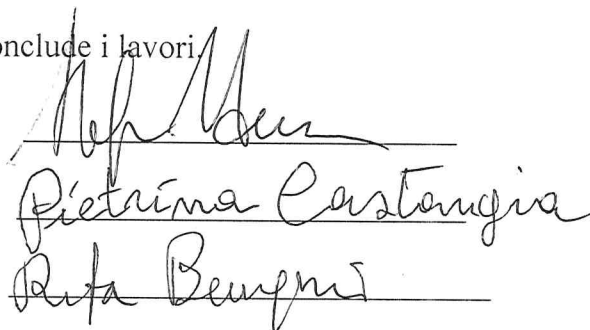 onclude i lavori.
Pietrina Castangia
Rita Benigni